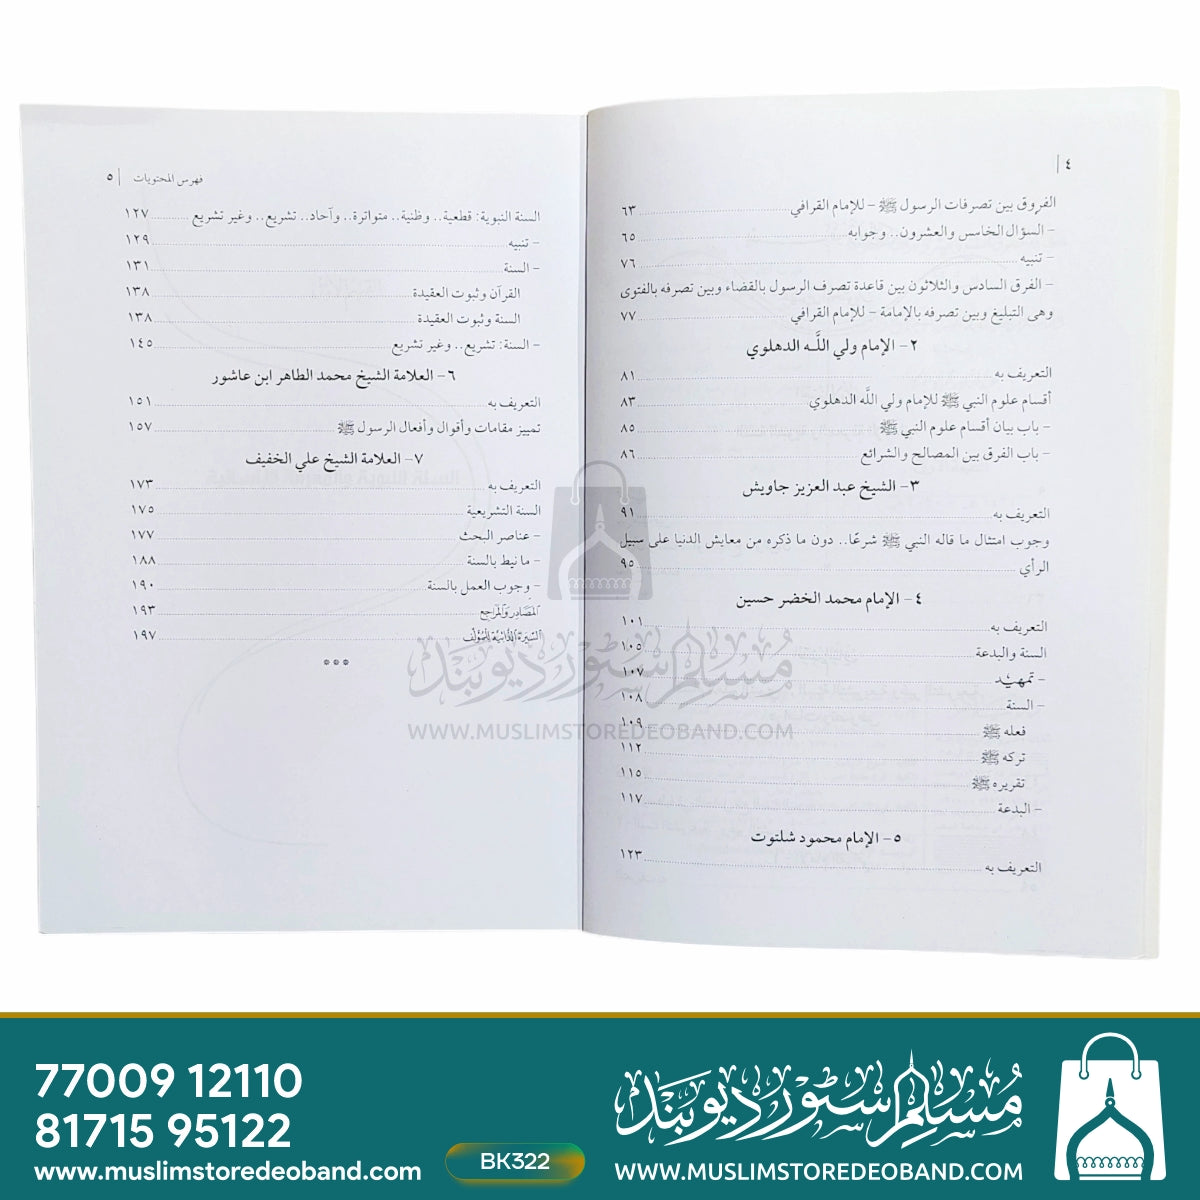 ٤
الفروق بين تصرفات الرسول ﷺ – للإمام القرافي ٦٣
– السؤال الخامس والعشرون.. وجوابه ٦٥
– تنبيه ٧٦
– الفرق السادس والثلاثون بين قاعدة تصرف الرسول بالقضاء وبين تصرفه بالفتوى
وهى التبليغ وبين تصرفه بالإمامة – للإمام القرافي ٧٧
٢– الإمام ولي اللَّه الدهلوي
التعريف به ٨١
أقسام علوم النبي ﷺ للإمام ولي اللَّه الدهلوي ٨٣
– باب بيان أقسام علوم النبي ﷺ ٨٥
– باب الفرق بين المصالح والشرائع ٨٦
٣– الشيخ عبد العزيز جاويش
التعريف به ٩١
وجوب امتثال ما قاله النبي ﷺ شرعًا.. دون ما ذكره من معايش الدنيا على سبيل
الرأي ٩٥
٤– الإمام محمد الخضر حسين
التعريف به ١٠١
السنة والبدعة ١٠٥
– تمهيد ١٠٧
– السنة ١٠٨
فعله ﷺ ١٠٩
تركه ﷺ ١١٢
تقريره ﷺ ١١٥
– البدعة ١١٧
٥– الإمام محمود شلتوت
التعريف به ١٢٣
فهرس المحتويات ٥
السنة النبوية: قطعية.. وظنية.. متواترة.. وآحاد.. تشريع.. وغير تشريع ١٢٧
– تنبيه ١٢٩
– السنة ١٣١
القرآن وثبوت العقيدة ١٣٨
السنة وثبوت العقيدة ١٣٨
– السنة: تشريع.. وغير تشريع ١٤٥
٦– العلامة الشيخ محمد الطاهر ابن عاشور
التعريف به ١٥١
تمييز مقامات وأقوال وأفعال الرسول ﷺ ١٥٧
٧– العلامة الشيخ علي الخفيف
التعريف به ١٧٣
السنة التشريعية ١٧٥
– عناصر البحث ١٧٧
– ما نيط بالسنة ١٨٨
– وجوب العمل بالسنة ١٩٠
المصادر والمراجع ١٩٣
السيرة الذاتية للمؤلف ١٩٧
مسلم سٹور دیوبند
WWW.MUSLIMSTOREDEOBAND.COM
77009 12110
81715 95122
www.muslimstoredeoband.com
BK322
مسلم سٹور دیوبند
WWW.MUSLIMSTOREDEOBAND.COM